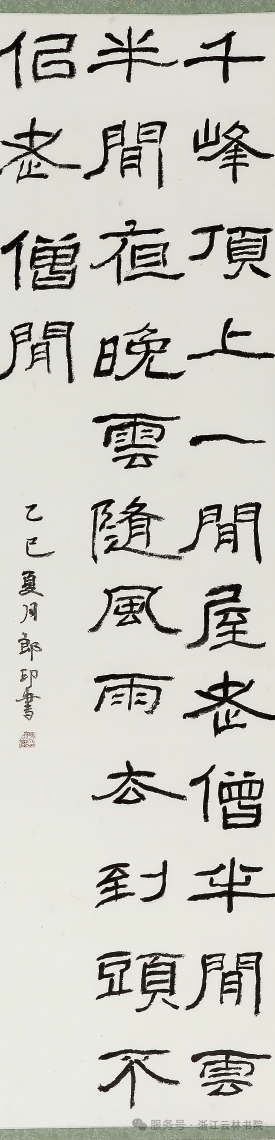 千峰頂上一間屋老僧半間雲
半間夜晚雲隨風雨去到頭不
侣老僧閒
乙巳夏月郎印書
服务号 · 浙江云林书院